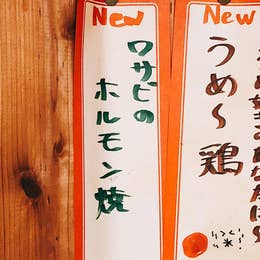 New
ワサビの
ホルモン焼
New
うめ〜鶏